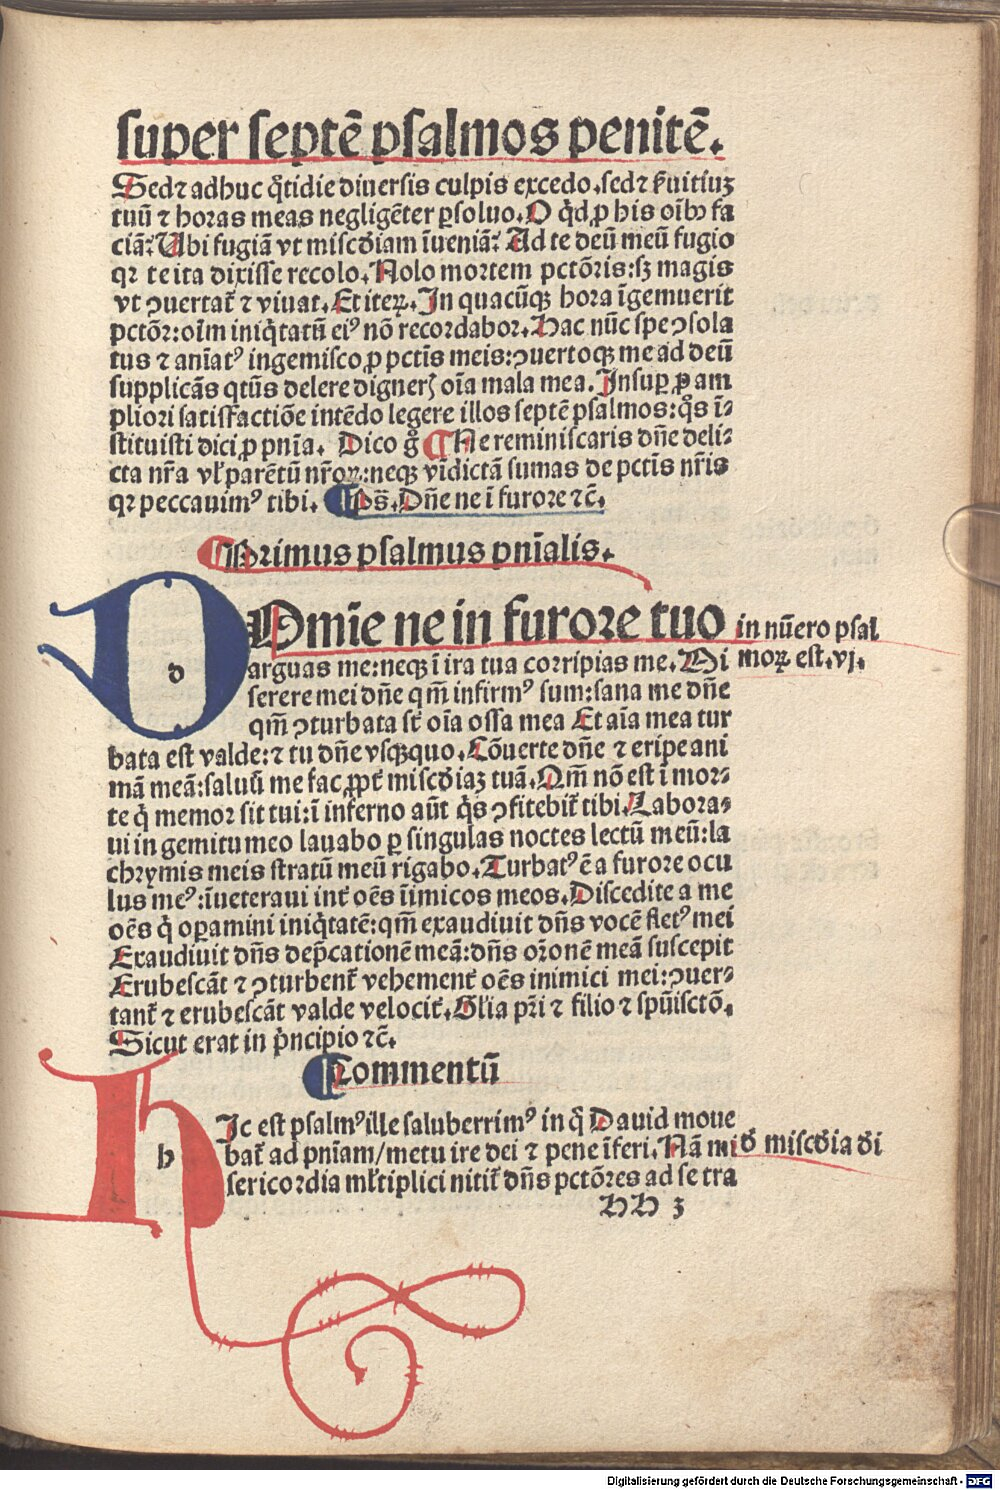 super septē psalmos penitē.
Sedꝛ adhuc q̄tidie diuersis culpis excedo.sedꝛ ẜuitiuꝫ
tuū ⁊ horas meas negligēter ꝑsoluo.O q̇d ꝓ his oīb9 fa
ciā:Ubi fugiā vt miscd̓iam īueniā:Ad te deū meū fugio
qꝛ te ita dixisse recolo.Nolo mortem pctōris:sꝫ magis
vt ꝯuertat̉ ⁊ viuat.Et iteꝝ.In quacūqꝫ hora īgemuerit
pctōr:olm iniq̇tatū eiꝰ nō recordabor.Hac nūc spe ꝯsola
tus ⁊ aniatꝰ ingemisco ꝓ pctis meis:ꝯuertoqꝫ me ad deū
supplicās qtūs delere digner̄ oīa mala mea. Insuꝑ ꝓ am
pliori satisfactiōe intēdo legere illos septē psalmos:q̊s ī-
stituisti dici ꝓ pnīa. Dico g̊ ¶ Ne reminiscaris dn̄e deli-
cta nr̄a vl̓ parētū nr̄oꝝ:neqꝫ vīdictā sumas de pctis nr̄is
qꝛ peccauimꝰ tibi. ¶ Ps̄.Dn̄e ne ī furore ⁊c̄.
¶ Primus psalmus pnīalis.
DOmīe ne in furore tuo
in nūero psal
d
arguas me:neqꝫ ī ira tua corripias me.Mi
moꝝ est.vj.
serere mei dn̄e qm̄ infirmꝰ sum:sana me dn̄e
qm̄ ꝯturbata st̄ oīa ossa mea Et aīa mea tur
bata est valde:⁊ tu dn̄e vsqꝫquo.Cōuerte dn̄e ⁊ eripe ani
mā meā:saluū me fac ꝓpt̉ miscd̓iaꝫ tuā.Qm̄ nō est ī mor-
te q̇ memor sit tui:ī inferno aūt q̇s ꝯfitebit̉ tibi.Labora-
ui in gemitu meo lauabo ꝑ singulas noctes lectū meū:la
chrymis meis stratū meū rigabo.Turbatꝰ ē a furore ocu
lus meꝰ:īueteraui int̉ oēs īimicos meos.Discedite a me
oēs q̇ oꝑamini iniq̇tatē:qm̄ exaudiuit dn̄s vocē fletꝰ mei
Exaudiuit dn̄s dep̄cationē meā:dn̄s oꝛonē meā suscepit
Erubescāt ⁊ ꝯturbent̉ vehement̉ oēs inimici mei:ꝯuer-
tant̉ ⁊ erubescāt valde velocit̉.Gl̓ia pr̄i ⁊ filio ⁊ spūisctō.
Sicut erat in pͥncipio ⁊c̄.
¶ Commentū
HIc est psalmꝰ ille saluberrimꝰ in q̊ Dauid moue
h
bat̉ ad pnīam/metu ire dei ⁊ pene īferi.Nā mi
d̓ miscd̓ia d̓i
sericordia ml̓tiplici nitit̉ dn̄s pctōres ad se tra
HH 3
Digitalisierung gefördert durch die Deutsche Forschungsgemeinschaft - DFG